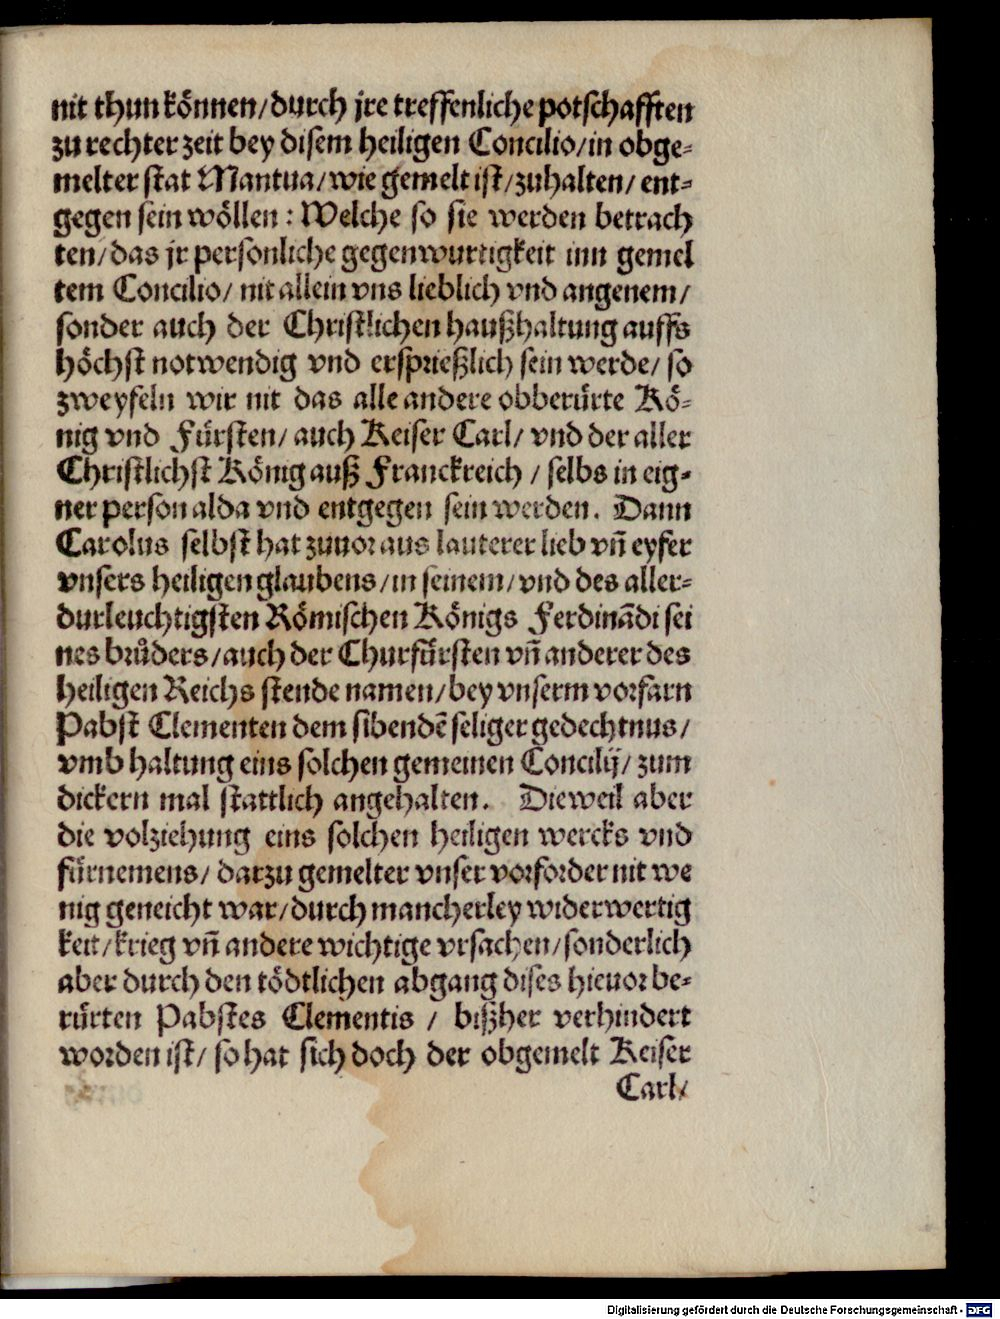 nit thun können/durch jre treffenliche potschafften
zu rechter zeit bey disem heiligen Concilio/in obge-
melter stat Mantua/wie gemelt ist/zuhalten/ ent-
gegen sein wöllen : Welche so sie werden betrach
ten/das jr personliche gegenwurtigkeit inn gemel
tem Concilio/ nit allein vns lieblich vnd angenem/
sonder auch der Christlichen haußhaltung auffs
höchst notwendig vnd ersprießlich sein werde/ so
zweyfeln wir nit das alle andere obberürte Kö-
nig vnd Fürsten/ auch Keiser Carl/ vnd der aller
Christlichst König auß Franckreich / selbs in eig-
ner person alda vnd entgegen sein werden. Dann
Carolus selbst hat zuuor aus lauterer lieb vñ eyfer
vnsers heiligen glaubens/in seinem/vnd des aller-
durleuchtigsten Römischen Königs Ferdinãdi sei
nes brůders/auch der Churfürsten vñ anderer des
heiligen Reichs stende namen/bey vnserm vorfarn
Pabst Clementen dem sibendẽ seliger gedechtnus/
vmb haltung eins solchen gemeinen Concilij/ zum
dickern mal stattlich angehalten. Dieweil aber
die volziehung eins solchen heiligen wercks vnd
fürnemens/ darzu gemelter vnser vorforder nit we
nig geneicht war/durch mancherley widerwertig
keit/krieg vñ andere wichtige vrsachen/sonderlich
aber durch den tödtlichen abgang dises hieuor be-
rürten Pabstes Clementis / bißher verhindert
worden ist/ so hat sich doch der obgemelt Keiser
Carl/
Digitalisierung gefördert durch die Deutsche Forschungsgemeinschaft - DFG